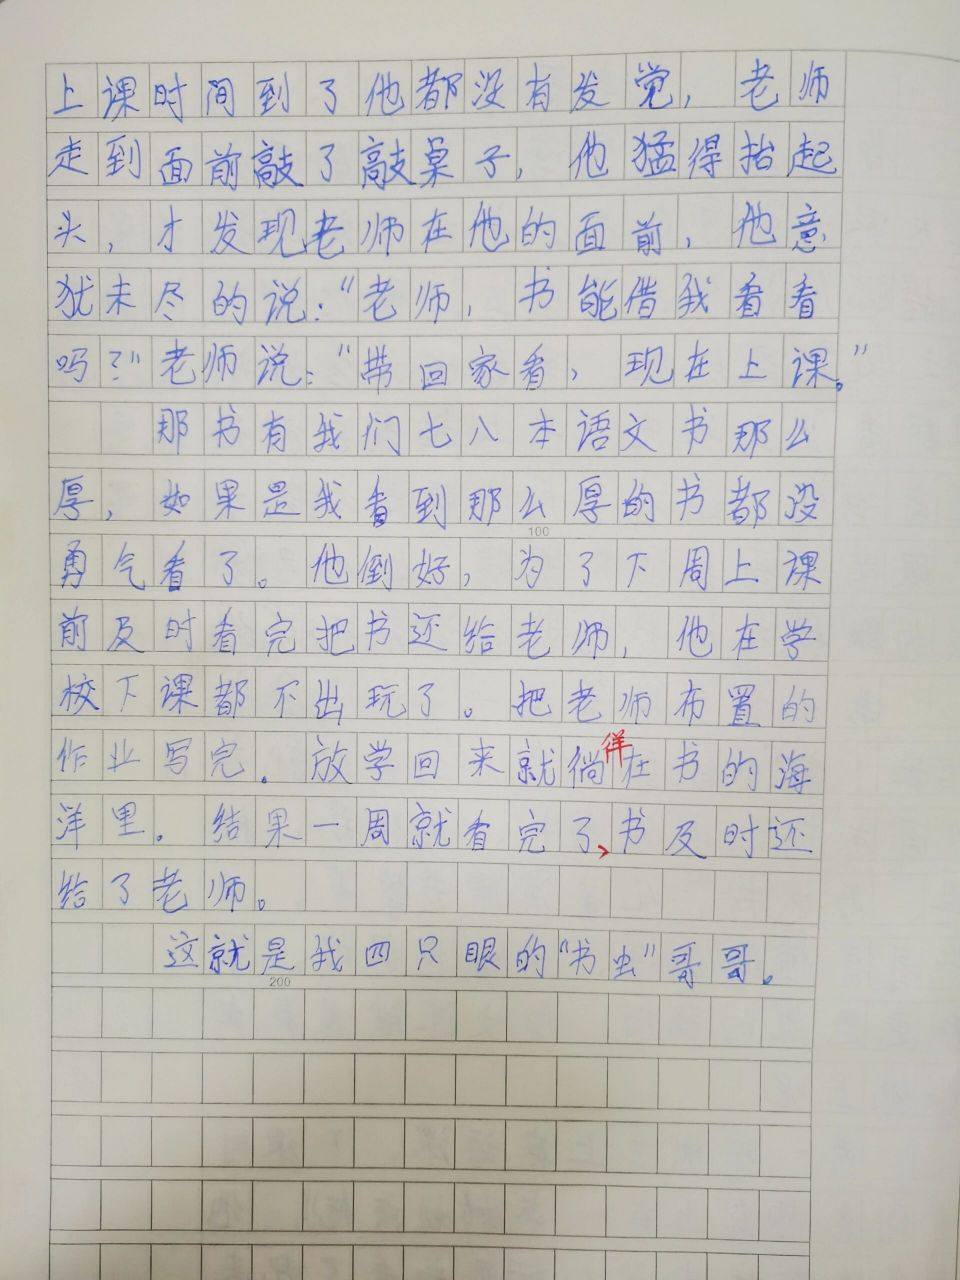 上课时间到了他都没有发觉，老师
走到面前敲了敲桌子，他猛得抬起
头，才发现老师在他的面前，他意
犹未尽的说：“老师，书能借我看看
吗？”老师说：“带回家看，现在上课。”
那书有我们七八本语文书那么
厚，如果是我看到那么厚的书都没
100
勇气看了。他倒好，为了下周上课
前及时看完把书还给老师，他在学
校下课都不出玩了。把老师布置的
作业写完。放学回来就徜徉在书的海
洋里。结果一周就看完了，书及时还
给了老师。
这就是我四只眼的“书虫”哥哥。
200